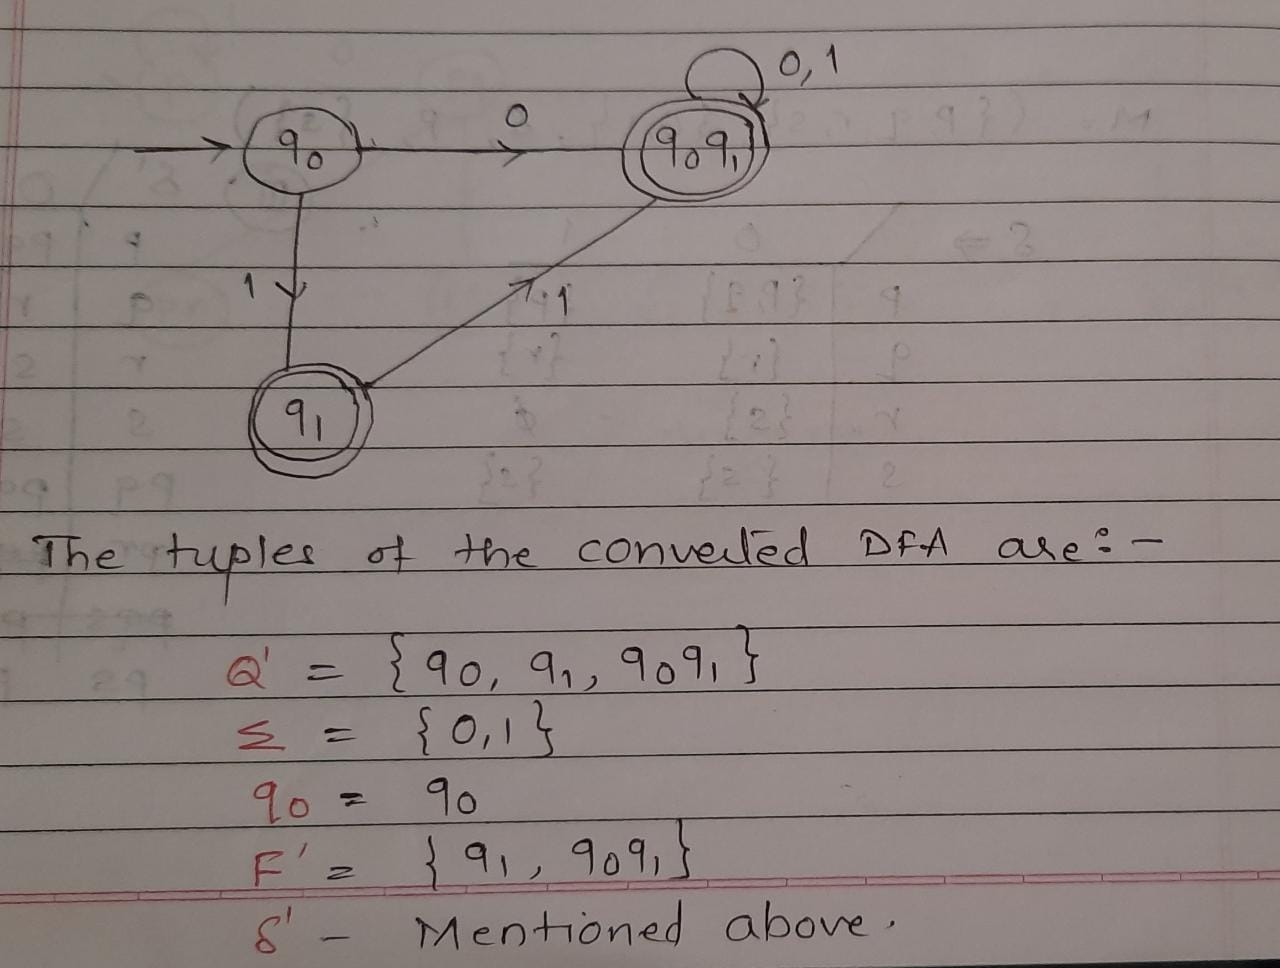 0,1
0
q₀
q₀q₁
1
1
q₁
The tuples of the converted DFA are:-
Q' = {q0, q₁, q0q₁}
Σ = {0,1}
q0 = q0
F' = {q₁, q0q₁}
δ' - Mentioned above.